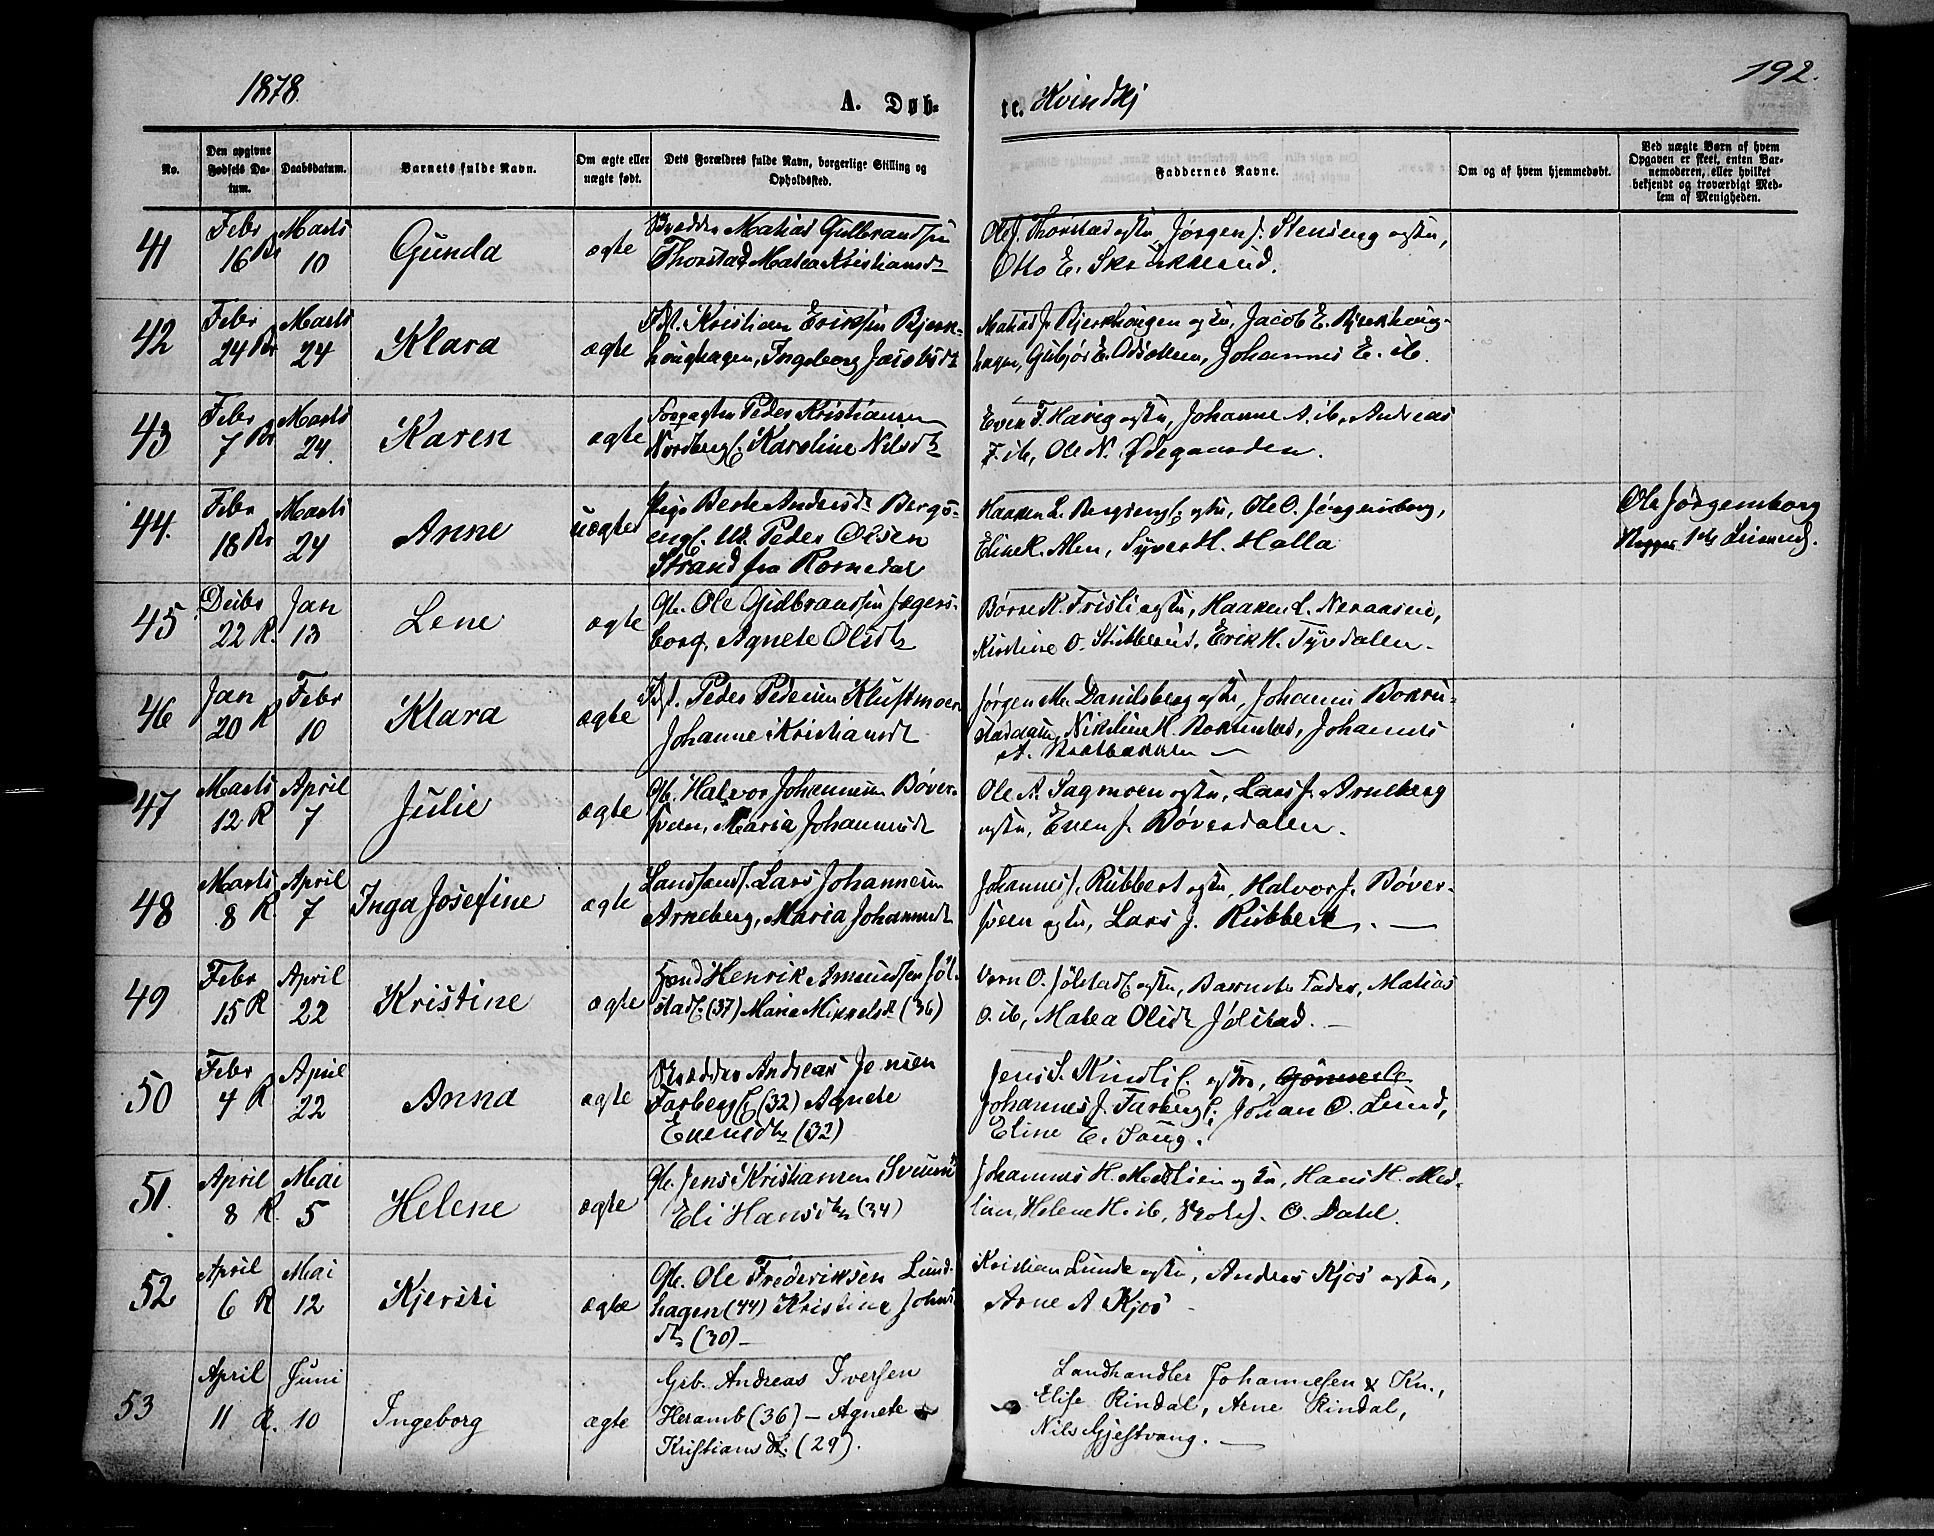 1878.
A. Døb-
te. Kvindkj
192.
No.
Den opgivne Fødsels Da-
tum.
Daabsdatum.
Barnets fulde Navn.
Om ægte eller
uægte født.
Dets Forældres fulde Navn, borgerlige Stilling og
Opholdssted.
Faddernes Navne.
Om og af hvem hjemmedøbt.
Ved uægte Børn af hvem
Opgaven er skeet, enten Bar-
nemoderen, eller hvilket
bekjendt og troværdigt Med-
lem af Menigheden.
41 Febr 16 Br Marts 10 Gunda ægte
Matias Gulbrandsen
Thorstad Matea Kristiansdt
Ole J. Thorstad ogstu, Jørgen J. Stenseng ogstu,
Otto E.
42 Febr 24 Br Marts 24 Klara ægte
Kristian Eriksen Bjerke-
haughagen, Ingeborg Jacobsdt
Matias J. Bjerkhougen ogstu, Jacob E. Bjerkhoug-
hagen, Johannes E. ib.
43 Febr 7 Br Marts 24. Karen ægte
Forpagter Peder Kristiansen
Nordberg, Karoline Nilsdt
Even F. ogstu, Johanne A. ib, Andreas
F. ib, Ole N. Ødegaarden.
44. Febr 18 Br Marts 24 Anne uægte
Pige Berte Andersdt Bergs-
eng. Uk. Peder Olsen
Strand fra Romedal
Haaken L. Bergseng ogstu, Ole O. Jørgensborg,
Eline K. Alm, Syver H. Holla
Ole Jørgensborg
45 Decbr 22 R. Jan 13 Lene ægte
Gb. Ole Gulbrandsen Jægers-
borg, Agnete Olsdt
Børre K. Fristi ogstu, Haaken L. Neraasen,
Kirstine O. Stubberud, Erik H. Tyvdalen.
46 Jan 20 R Febr 10 Klara ægte
Peder Pedersen Kluftmoen
Johanne Kristiansdt
Jørgen M. Danielsberg ogstu, Johannes
Nikoline H. Johannes
47 Marts 12 R April 7 Julie ægte
Gb. Halvor Johannesen Bøver-
sveen, Maria Johannesdt
Ole A. Sagmoen ogstu, Lars J. Arneberg
ogstu, Even J. Bøverdalen.
48 Marts 8 R April 7 Inga Josefine ægte
Lars Johannesen
Arneberg, Maria Johannesdt
Johannes J. Rubbert ogstu, Halvor J. Bøver-
sveen ogstu, Lars J. Rubbert.
49 Febr 15 R April 22 Kristine ægte
Henrik Amundsen Jøl-
stad (37) Maria Mikkelsdt (36)
O. Jølstad ogstu, Barnets Fader, Matias
O. ib, Matea Olsdt Jølstad.
50 Febr 4 R April 22 Anna ægte
Andreas Jensen
Farberg (32) Agnete
Evensdtr (32)
Jens S. Kindli ogstu,
Johannes J. Farberg, Johan O. Lund,
Eline E. Saug.
51. April 8 R. Mai 5 Helene ægte
Gb. Jens Kristiansen
Eli Hansdtr (34)
Johannes H. Medlien ogstu, Hans H. Med-
lien, Helene H. ib, O. Dahl.
52 April 6 R Mai 12 Kjersti ægte
Gb. Ole Frederiksen Lund-
hagen (44) Kristine Johns-
dtr (30)
Kristian Lunde ogstu, Andreas Kjos ogstu,
Arne A Kjos
53 April 11 R. Juni 10 Ingeborg ægte
Grb. Andreas Iversen
Heramb (36) – Agnete
Kristiansdt. (29).
Landhandler Johannesen & Kn.,
Elise Rindal, Arne Rindal,
Nils Gjestvang.